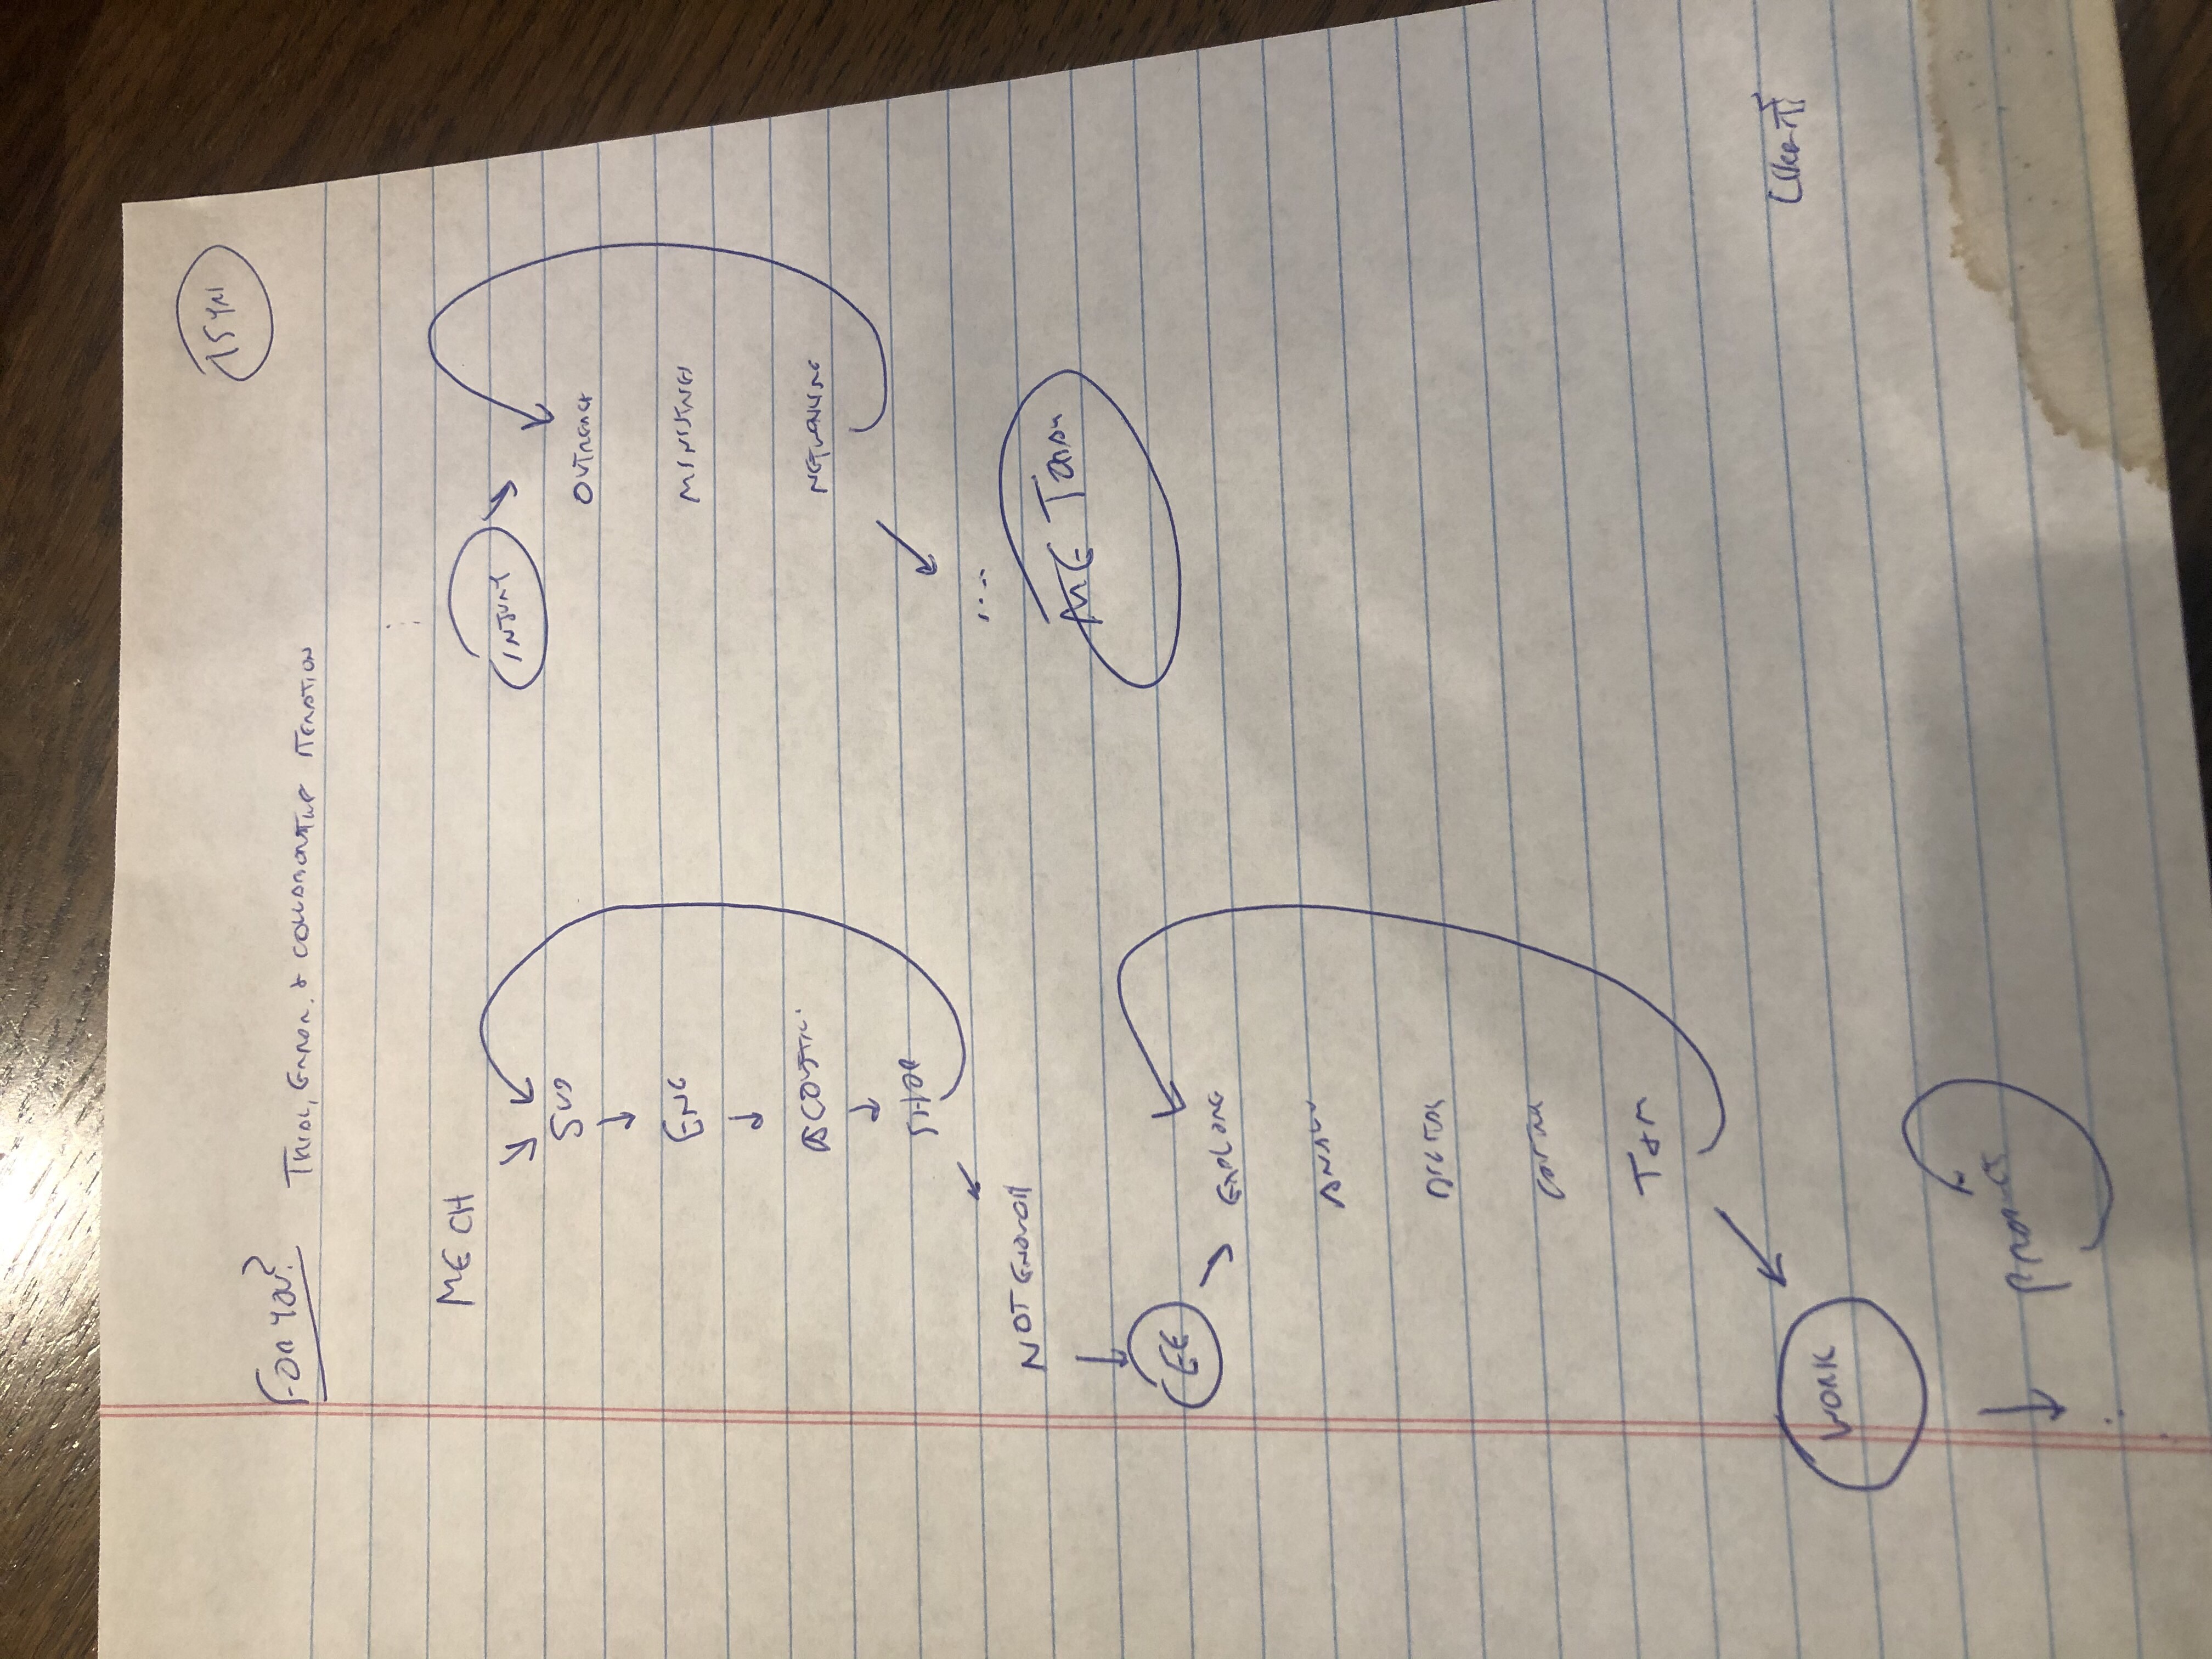 15 YRS
FOR YOU?
TRIAL, ERROR, & COLLABORATIVE ITERATION
MECH
SUB
ENG
ACOUSTIC
SHOP
NOT ENOUGH
EE
EXPLORE
ANALO
DIGITAL
T&M
WORK
PRODUCT
INJURY
OUTREACH
MINISTRIES
NETWORKING
...
ME TODAY